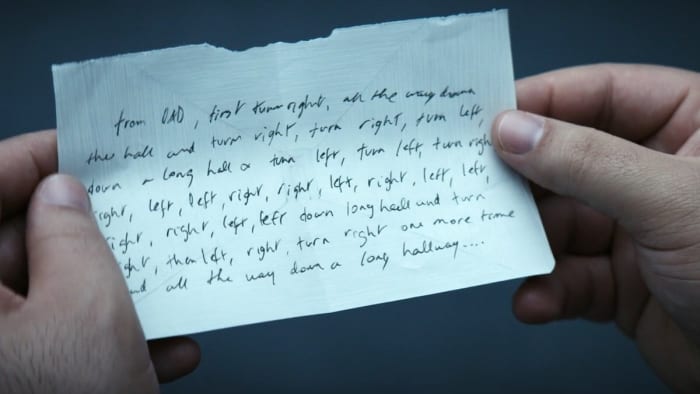 from O&D, first turn right, all the way down
the hall and turn right, turn right, turn left,
down a long hall & turn left, turn left, turn right
right, left, left, right, right, left, right, left, left,
right, right, left, left down long hall and turn
right, then left, right, turn right one more time
and all the way down a long hallway....